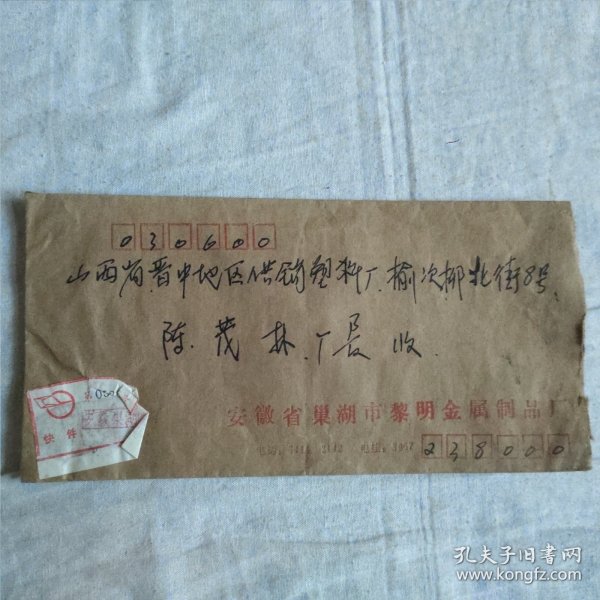 030600
山西省晋中地区供销塑料厂.榆次柳北街8号.
陈茂林.厂长收.
安徽省巢湖市黎明金属制品厂
快件
238000
孔夫子旧书网
www.kongfz.com